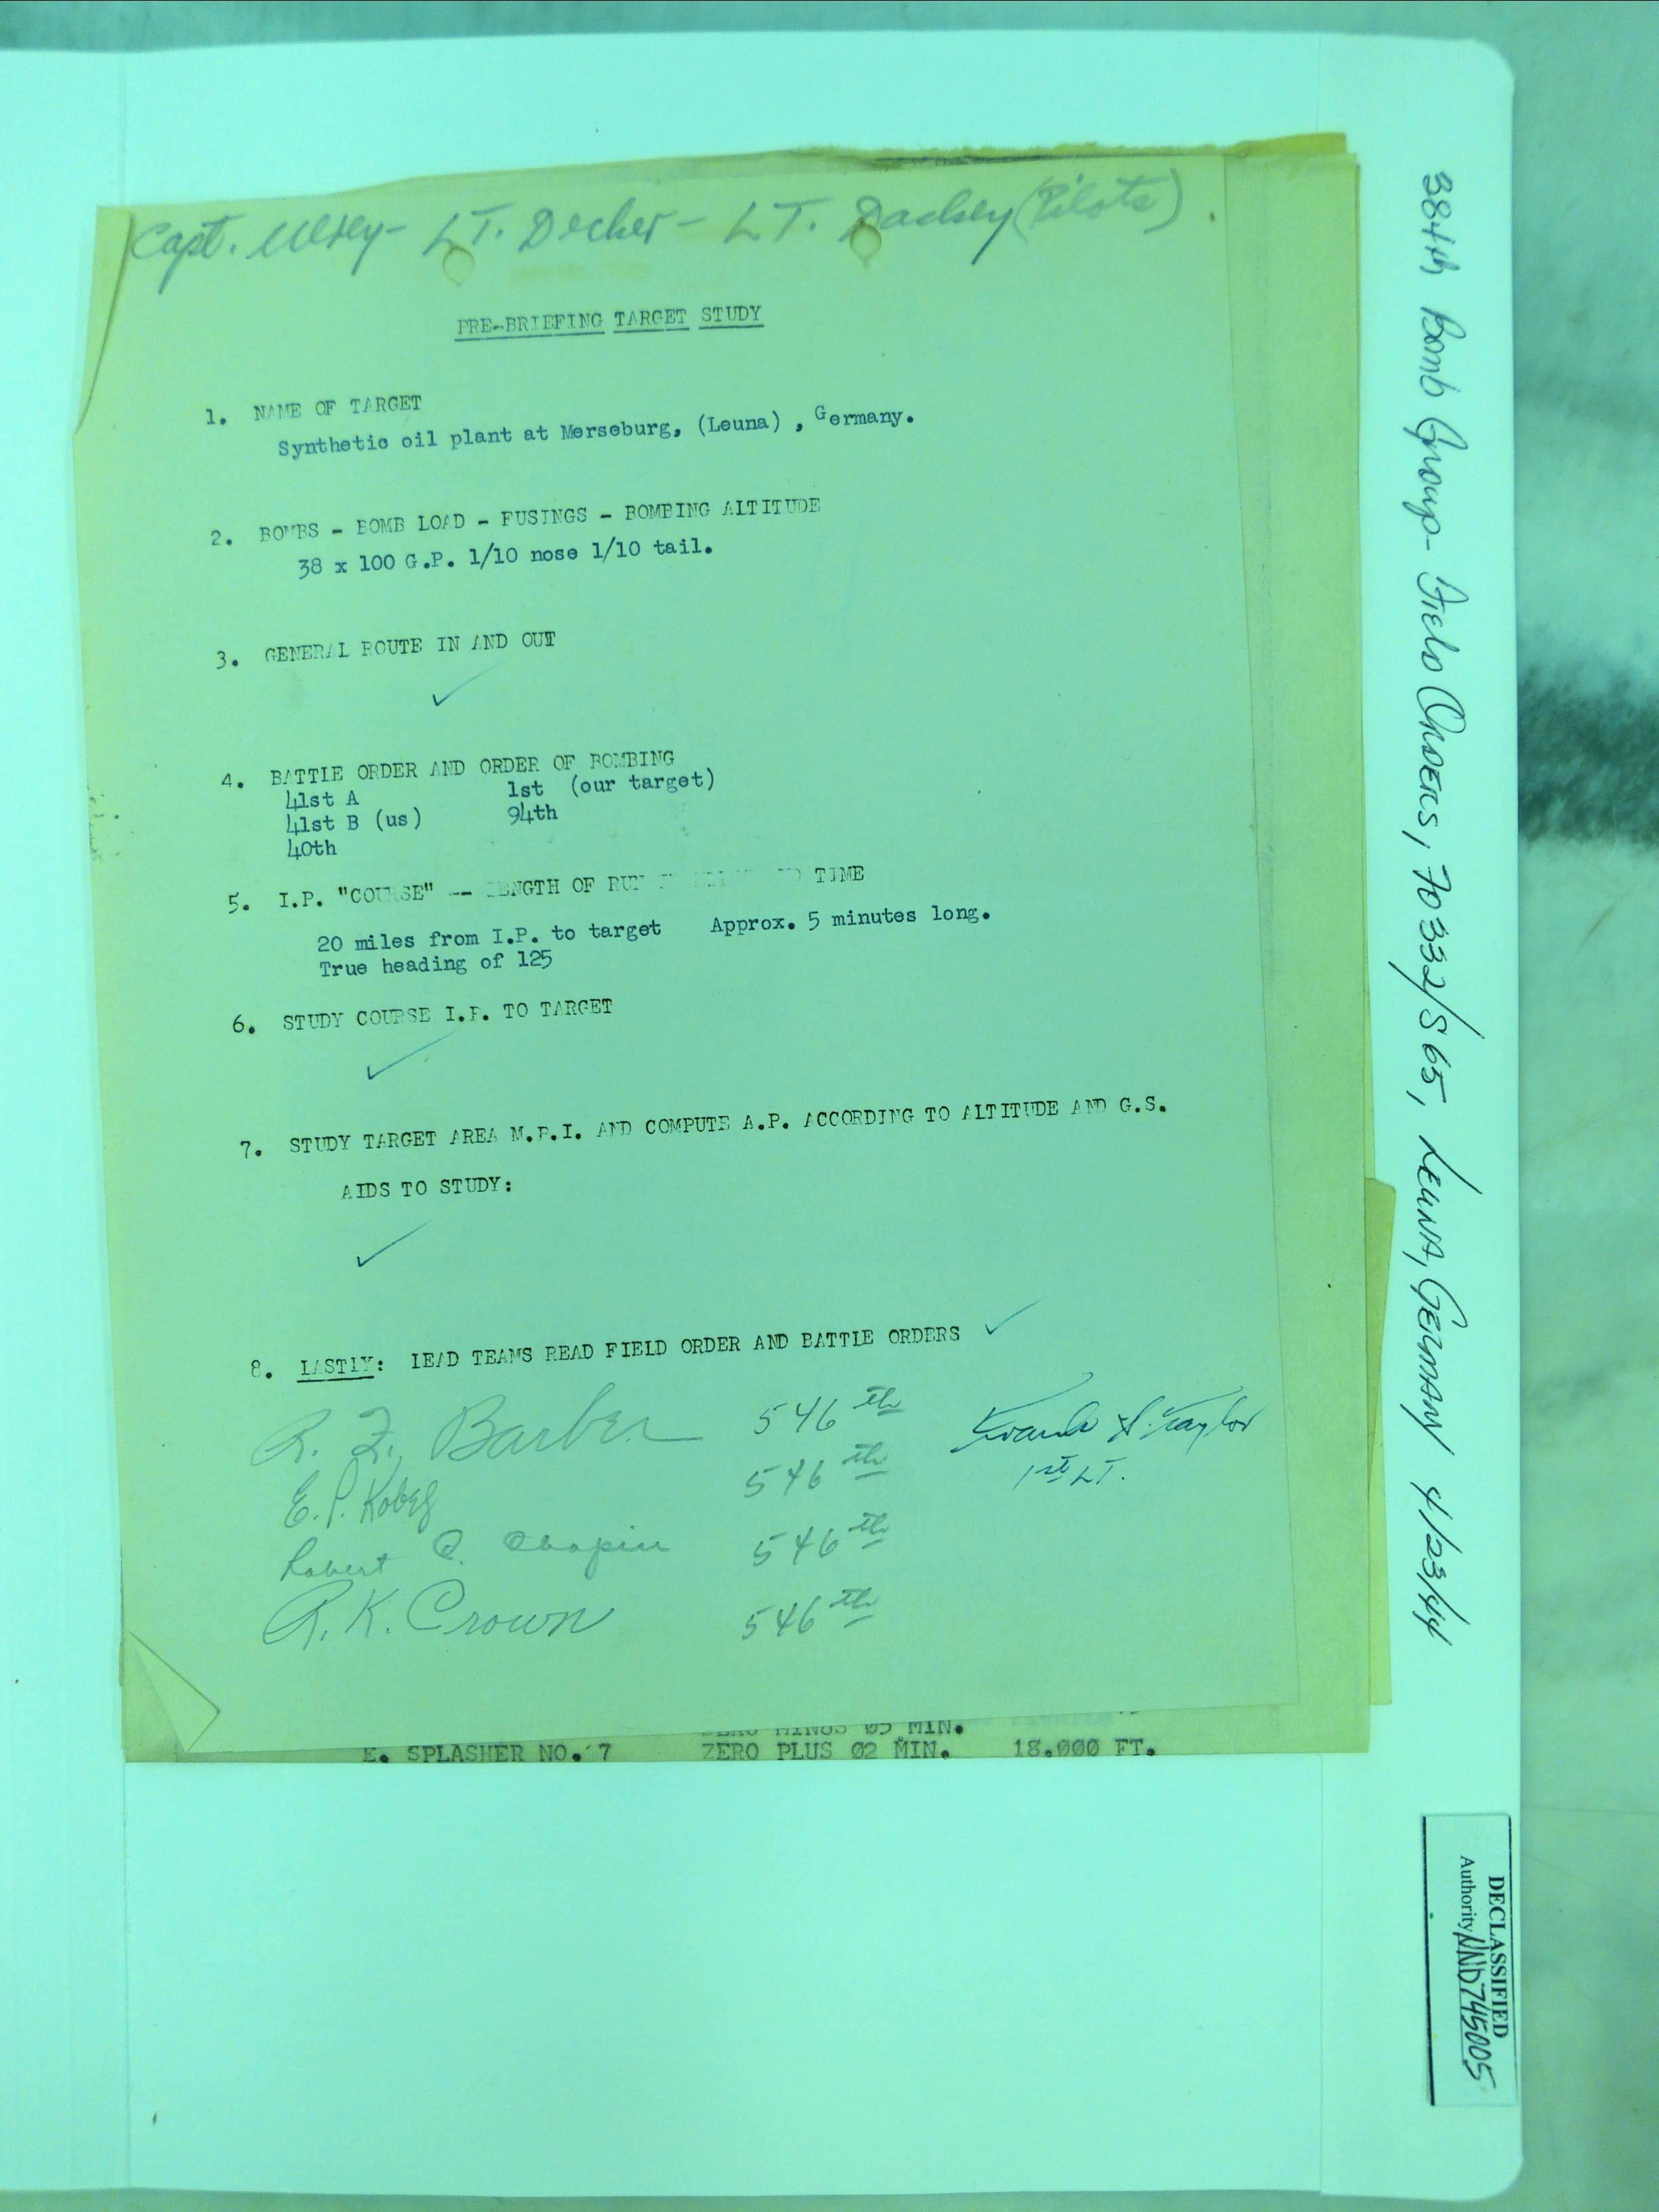 Capt. Ulrey - LT. Decker - LT. Dackey (Pilots).
PRE-BRIEFING TARGET STUDY
1. NAME OF TARGET
Synthetic oil plant at Merseburg, (Leuna) , Germany.
2. BOMBS - BOMB LOAD - FUSINGS - BOMBING ALTITUDE
38 x 100 G.P. 1/10 nose 1/10 tail.
3. GENERAL ROUTE IN AND OUT
✓
4. BATTLE ORDER AND ORDER OF BOMBING
41st A 1st (our target)
41st B (us) 94th
40th
5. I.P. "COURSE" -- LENGTH OF RUN TIME
20 miles from I.P. to target Approx. 5 minutes long.
True heading of 125
6. STUDY COURSE I.P. TO TARGET
✓
7. STUDY TARGET AREA M.P.I. AND COMPUTE A.P. ACCORDING TO ALTITUDE AND G.S.
AIDS TO STUDY:
✓
8. LASTLY: LEAD TEAMS READ FIELD ORDER AND BATTLE ORDERS ✓
R. F. Barber 546th Frank S. Taylor
1st LT.
E. P. Kobel 546th
Robert Q. Chapin 546th
R. K. Crown 546th
ZERO MINUS 05 MIN.
E. SPLASHER NO. 7 ZERO PLUS 02 MIN. 18.000 FT.
384th Bomb Group - Field Orders, FO 332/S65, Leuna, Germany 4/23/44
DECLASSIFIED
Authority NND745005